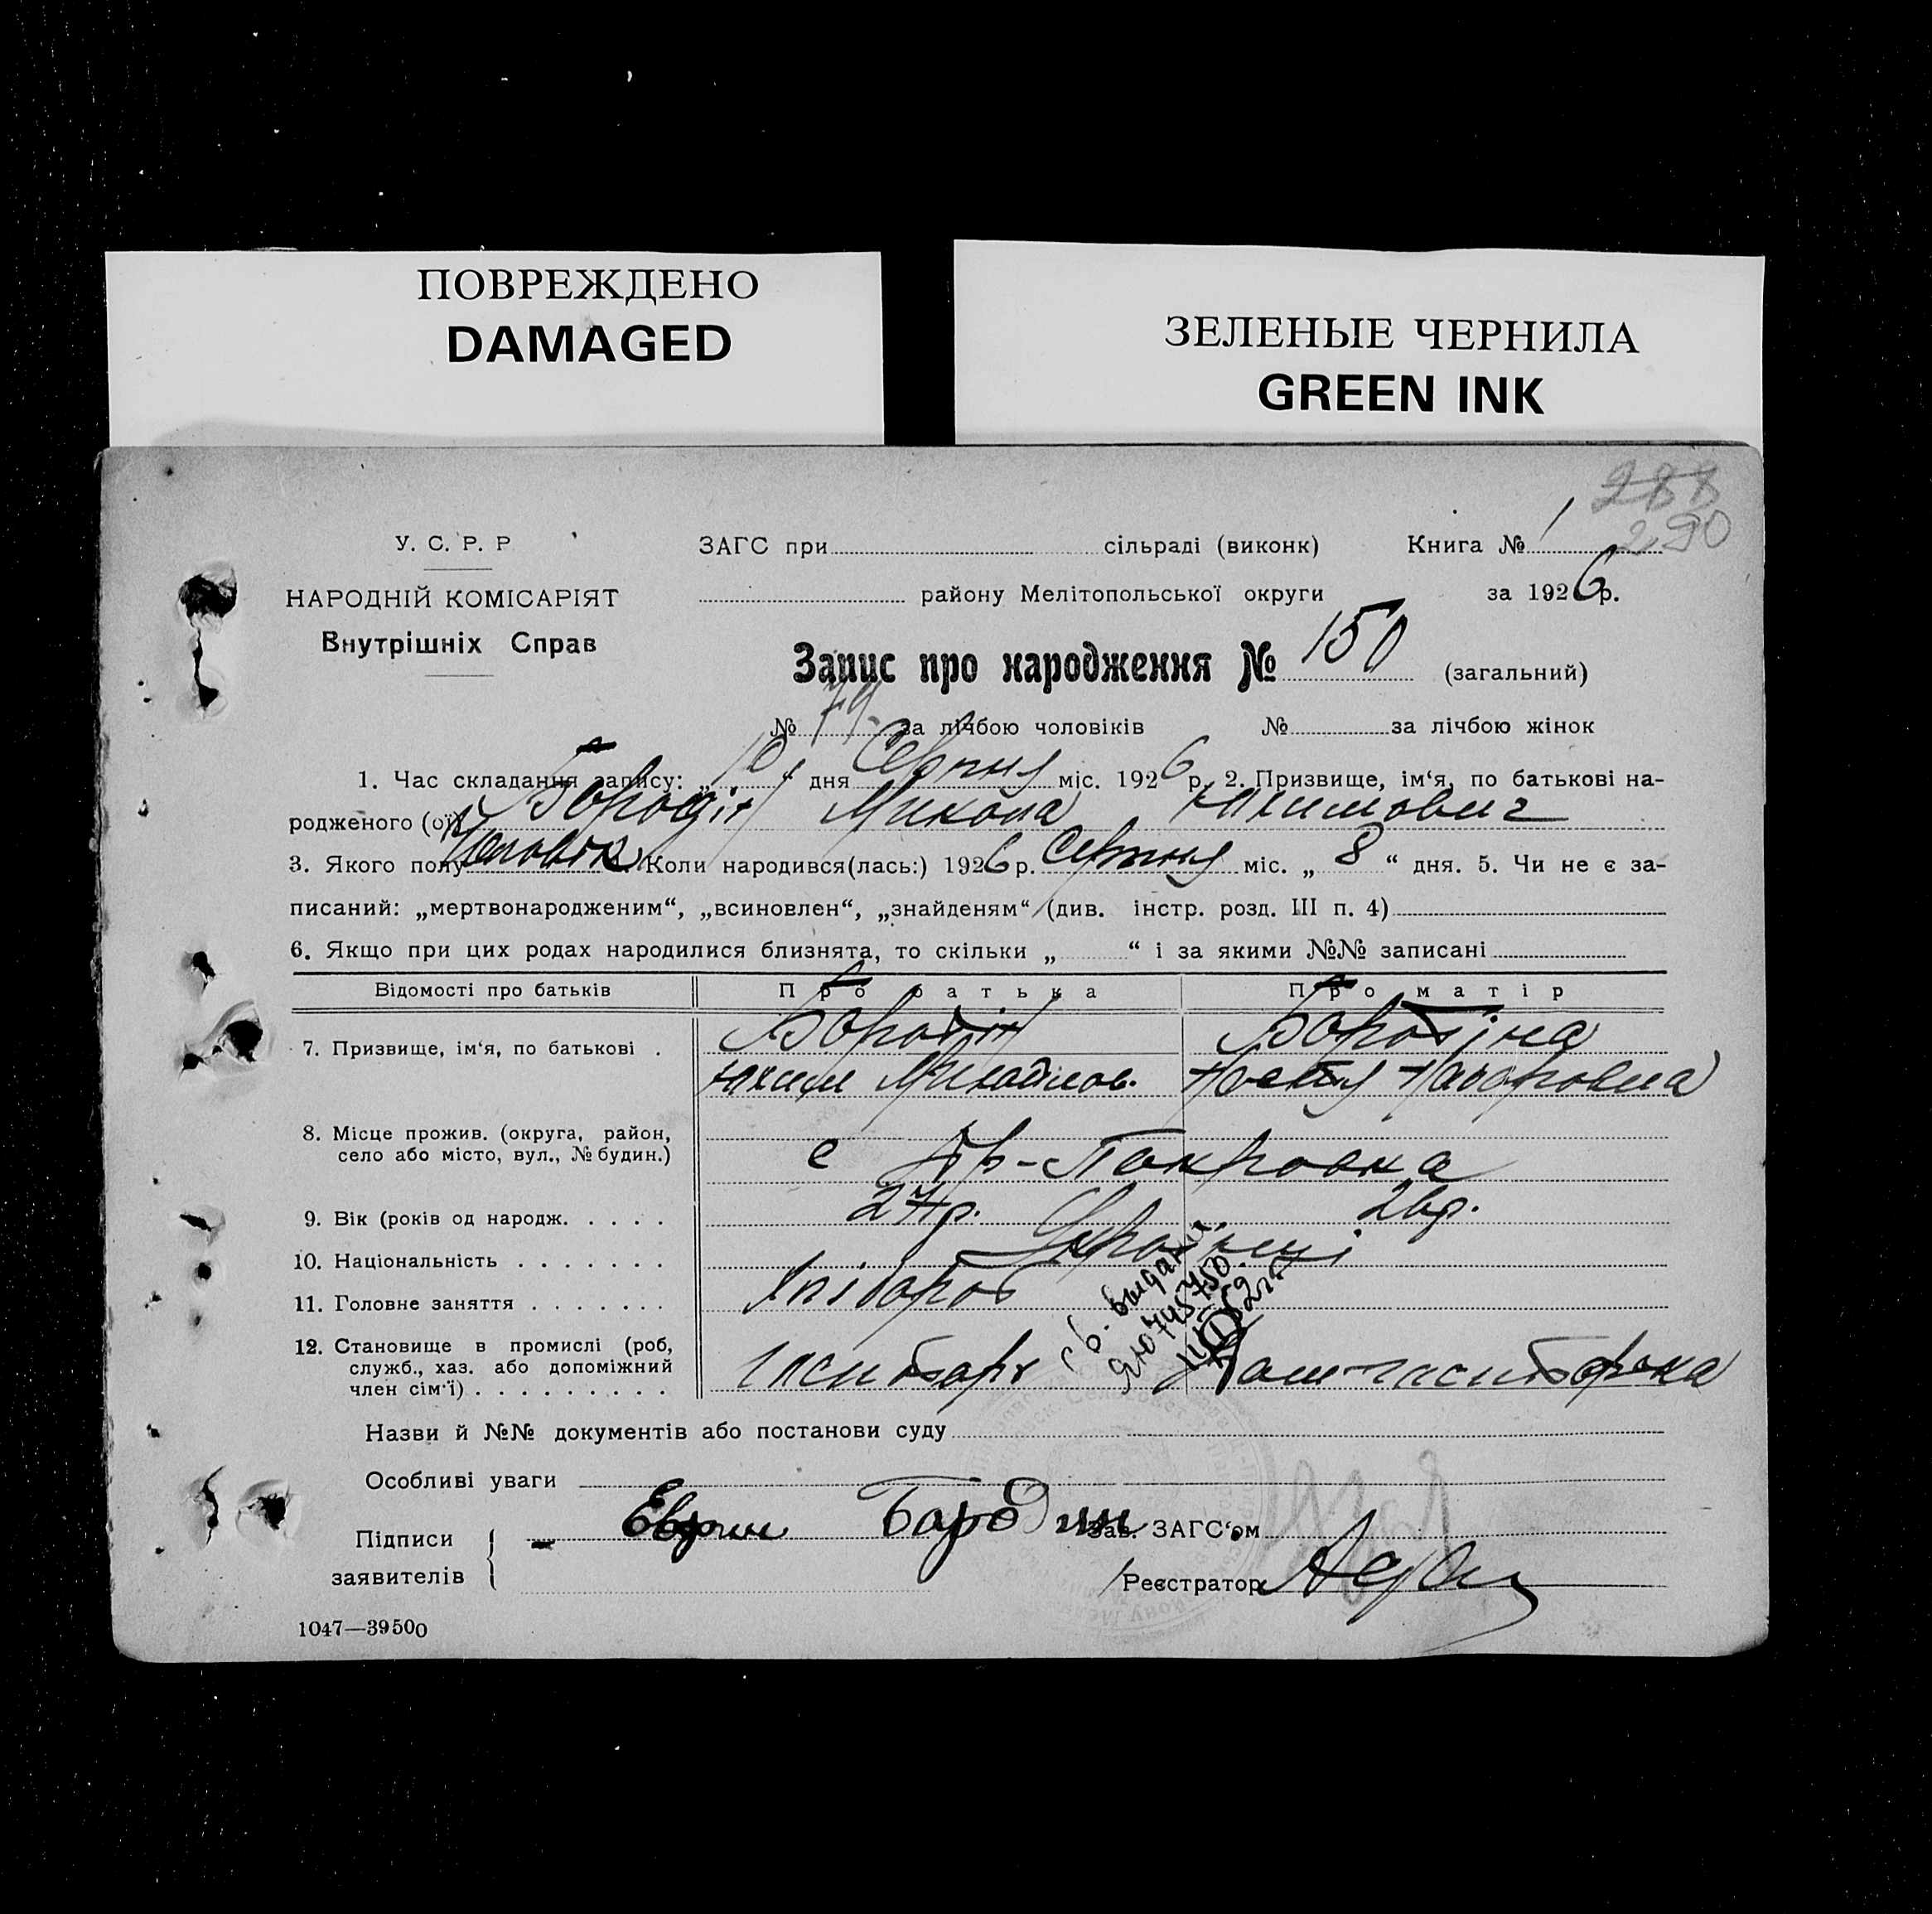 ПОВРЕЖДЕНО
DAMAGED
ЗЕЛЕНЫЕ ЧЕРНИЛА
GREEN INK
288
290
У. С. Р. Р
НАРОДНІЙ КОМІСАРІЯТ
Внутрішніх Справ
ЗАГС при сільраді (виконк) Книга № 1
району Мелітопольської округи за 1926 р.
Запис про народження № 150 (загальний)
№ 79 за лічбою чоловіків № за лічбою жінок
1. Час складання запису: „10“ дня Серпня міс. 1926 р. 2. Призвище, ім‘я, по батькові на-
родженого (ої) Бородін Микола Юхимович
3. Якого полу Чоловік Коли народився(лась:) 1926 р. Серпня міс. „ 8 “ дня. 5. Чи не є за-
писаний: „мертвонародженим“, „всиновлен“, „знайденям“ (див. інстр. розд. III п. 4)
6. Якщо при цих родах народилися близнята, то скільки „ “ і за якими №№ записані
Відомості про батьків Про батька Про матір
7. Призвище, ім‘я, по батькові . Бородін Бородіна
Юхим Михайлов.
8. Місце прожив. (округа, район,
село або місто, вул., № будин.) с -Покровка
9. Вік (років од народж. . . . . 27 р. 26 р.
10. Національність . . . . . . . Українці
11. Головне заняття . . . . . . . Хлібороб
12. Становище в промислі (роб,
служб., хаз. або допоміжний
член сім‘ї) . . . . . . . . .
св. выдано
ЯЮ 745750
Назви й №№ документів або постанови суду
Особливі уваги
Підписи
заявителів
Бародин
Зав. ЗАГС‘ом
Реєстратор
1047—39500